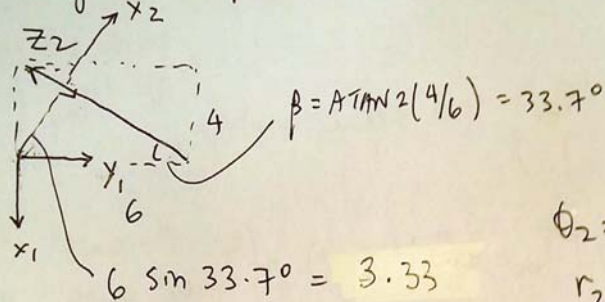 x2
z2
4
β = ATAN2(4/6) = 33.7°
y1
6
x1
θ2=
r2
6 sin 33.7° = 3.33